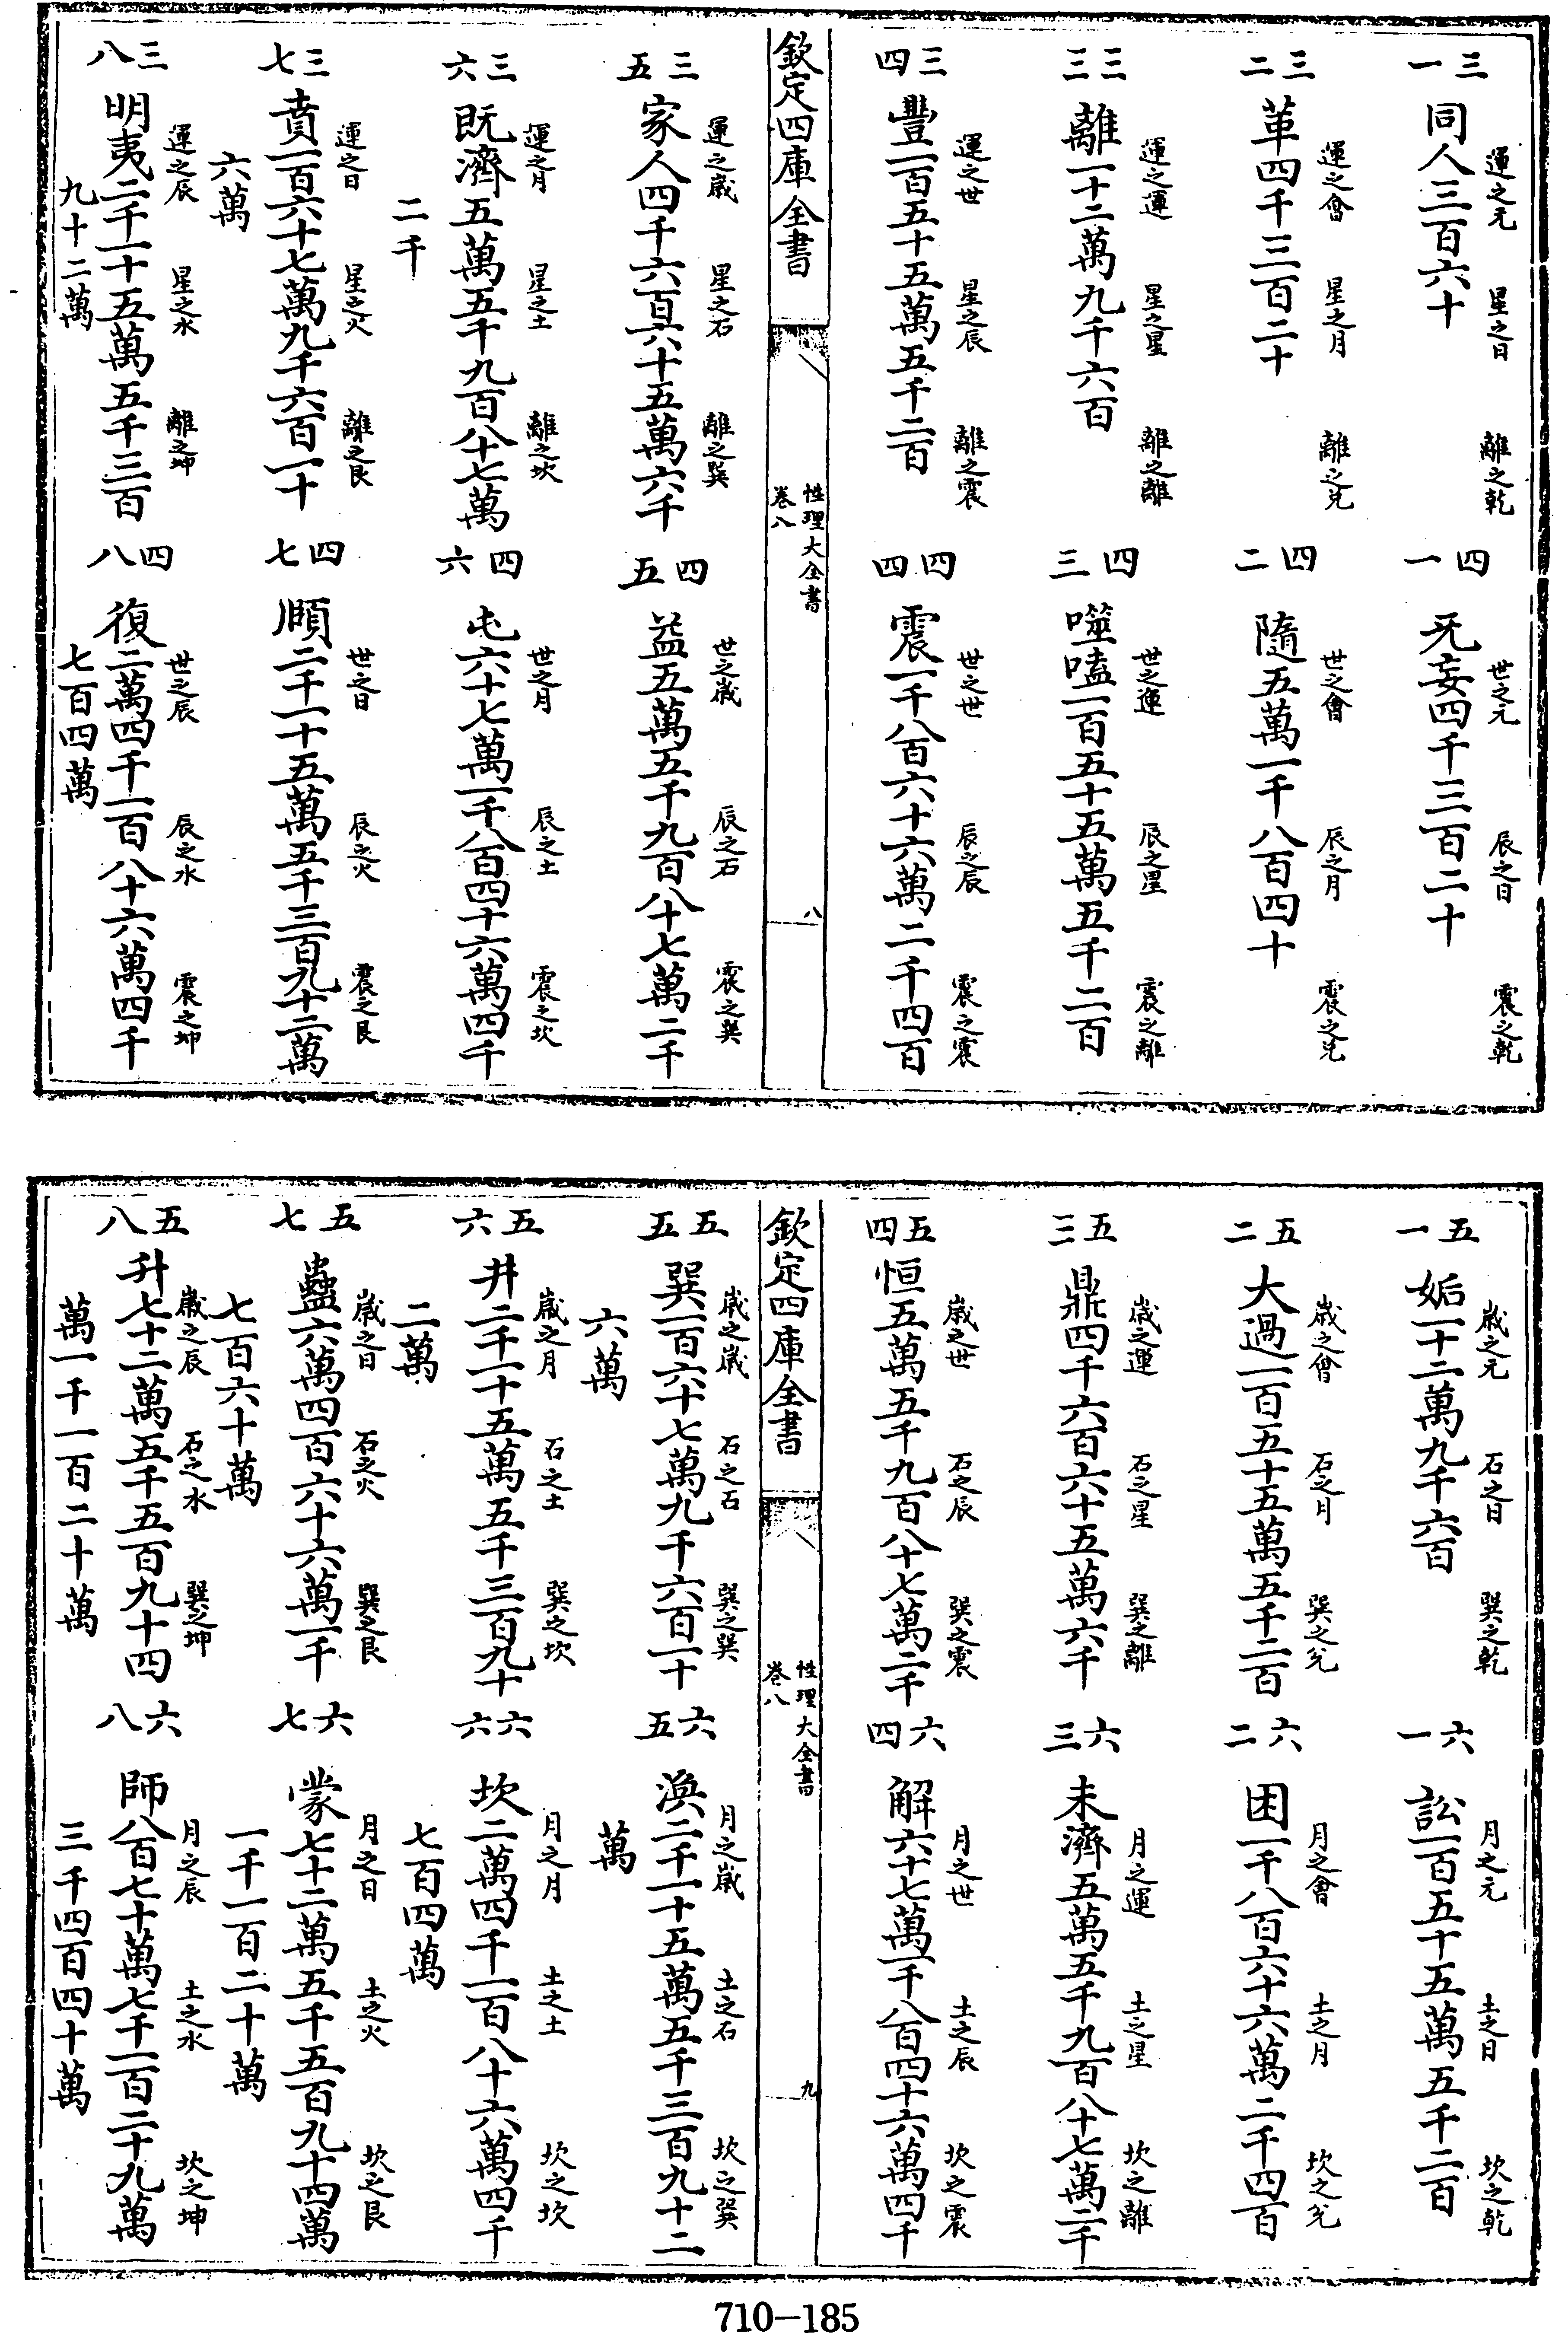 三一
運之元 星之日 離之乾
同人三百六十
四一
世之元 辰之日 震之乾
无妄四千三百二十
三二
運之會 星之月 離之兌
革四千三百二十
四二
世之會 辰之月 震之兌
隨五萬一千八百四十
三三
運之運 星之星 離之離
離一十二萬九千六百
四三
世之運 辰之星 震之離
噬嗑一百五十五萬五千二百
三四
運之世 星之辰 離之震
豐一百五十五萬五千二百
四四
世之世 辰之辰 震之震
震一千八百六十六萬二千四百
欽定四庫全書
性理大全書
卷八
八
三五
運之歲 星之石 離之巽
家人四千六百六十五萬六千
四五
世之歲 辰之石 震之巽
益五萬五千九百八十七萬二千
三六
運之月 星之土 離之坎
既濟五萬五千九百八十七萬
二千
四六
世之月 辰之土 震之坎
屯六十七萬一千八百四十六萬四千
三七
運之日 星之火 離之艮
賁一百六十七萬九千六百一十
六萬
四七
世之日 辰之火 震之艮
頤二千一十五萬五千三百九十二萬
三八
運之辰 星之水 離之坤
明夷二千一十五萬五千三百
九十二萬
四八
世之辰 辰之水 震之坤
復二萬四千一百八十六萬四千
七百四萬
五一
歲之元 石之日 巽之乾
姤一十二萬九千六百
六一
月之元 土之日 坎之乾
訟一百五十五萬五千二百
五二
歲之會 石之月 巽之兌
大過一百五十五萬五千二百
六二
月之會 土之月 坎之兌
困一千八百六十六萬二千四百
五三
歲之運 石之星 巽之離
鼎四千六百六十五萬六千
六三
月之運 土之星 坎之離
未濟五萬五千九百八十七萬二千
五四
歲之世 石之辰 巽之震
恒五萬五千九百八十七萬二千
六四
月之世 土之辰 坎之震
解六十七萬一千八百四十六萬四千
欽定四庫全書
性理大全書
卷八
九
五五
歲之歲 石之石 巽之巽
巽一百六十七萬九千六百一十
六萬
六五
月之歲 土之石 坎之巽
渙二千一十五萬五千三百九十二
萬
五六
歲之月 石之土 巽之坎
井二千一十五萬五千三百九十
二萬
六六
月之月 土之土 坎之坎
坎二萬四千一百八十六萬四千
七百四萬
五七
歲之日 石之火 巽之艮
蠱六萬四百六十六萬一千
七百六十萬
六七
月之日 土之火 坎之艮
蒙七十二萬五千五百九十四萬
一千一百二十萬
五八
歲之辰 石之水 巽之坤
升七十二萬五千五百九十四
萬一千一百二十萬
六八
月之辰 土之水 坎之坤
師八百七十萬七千一百二十九萬
三千四百四十萬
710-185